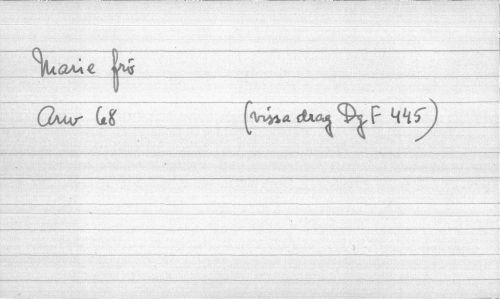 Marie frö
Arw 68 (vissa drag DgF 445)